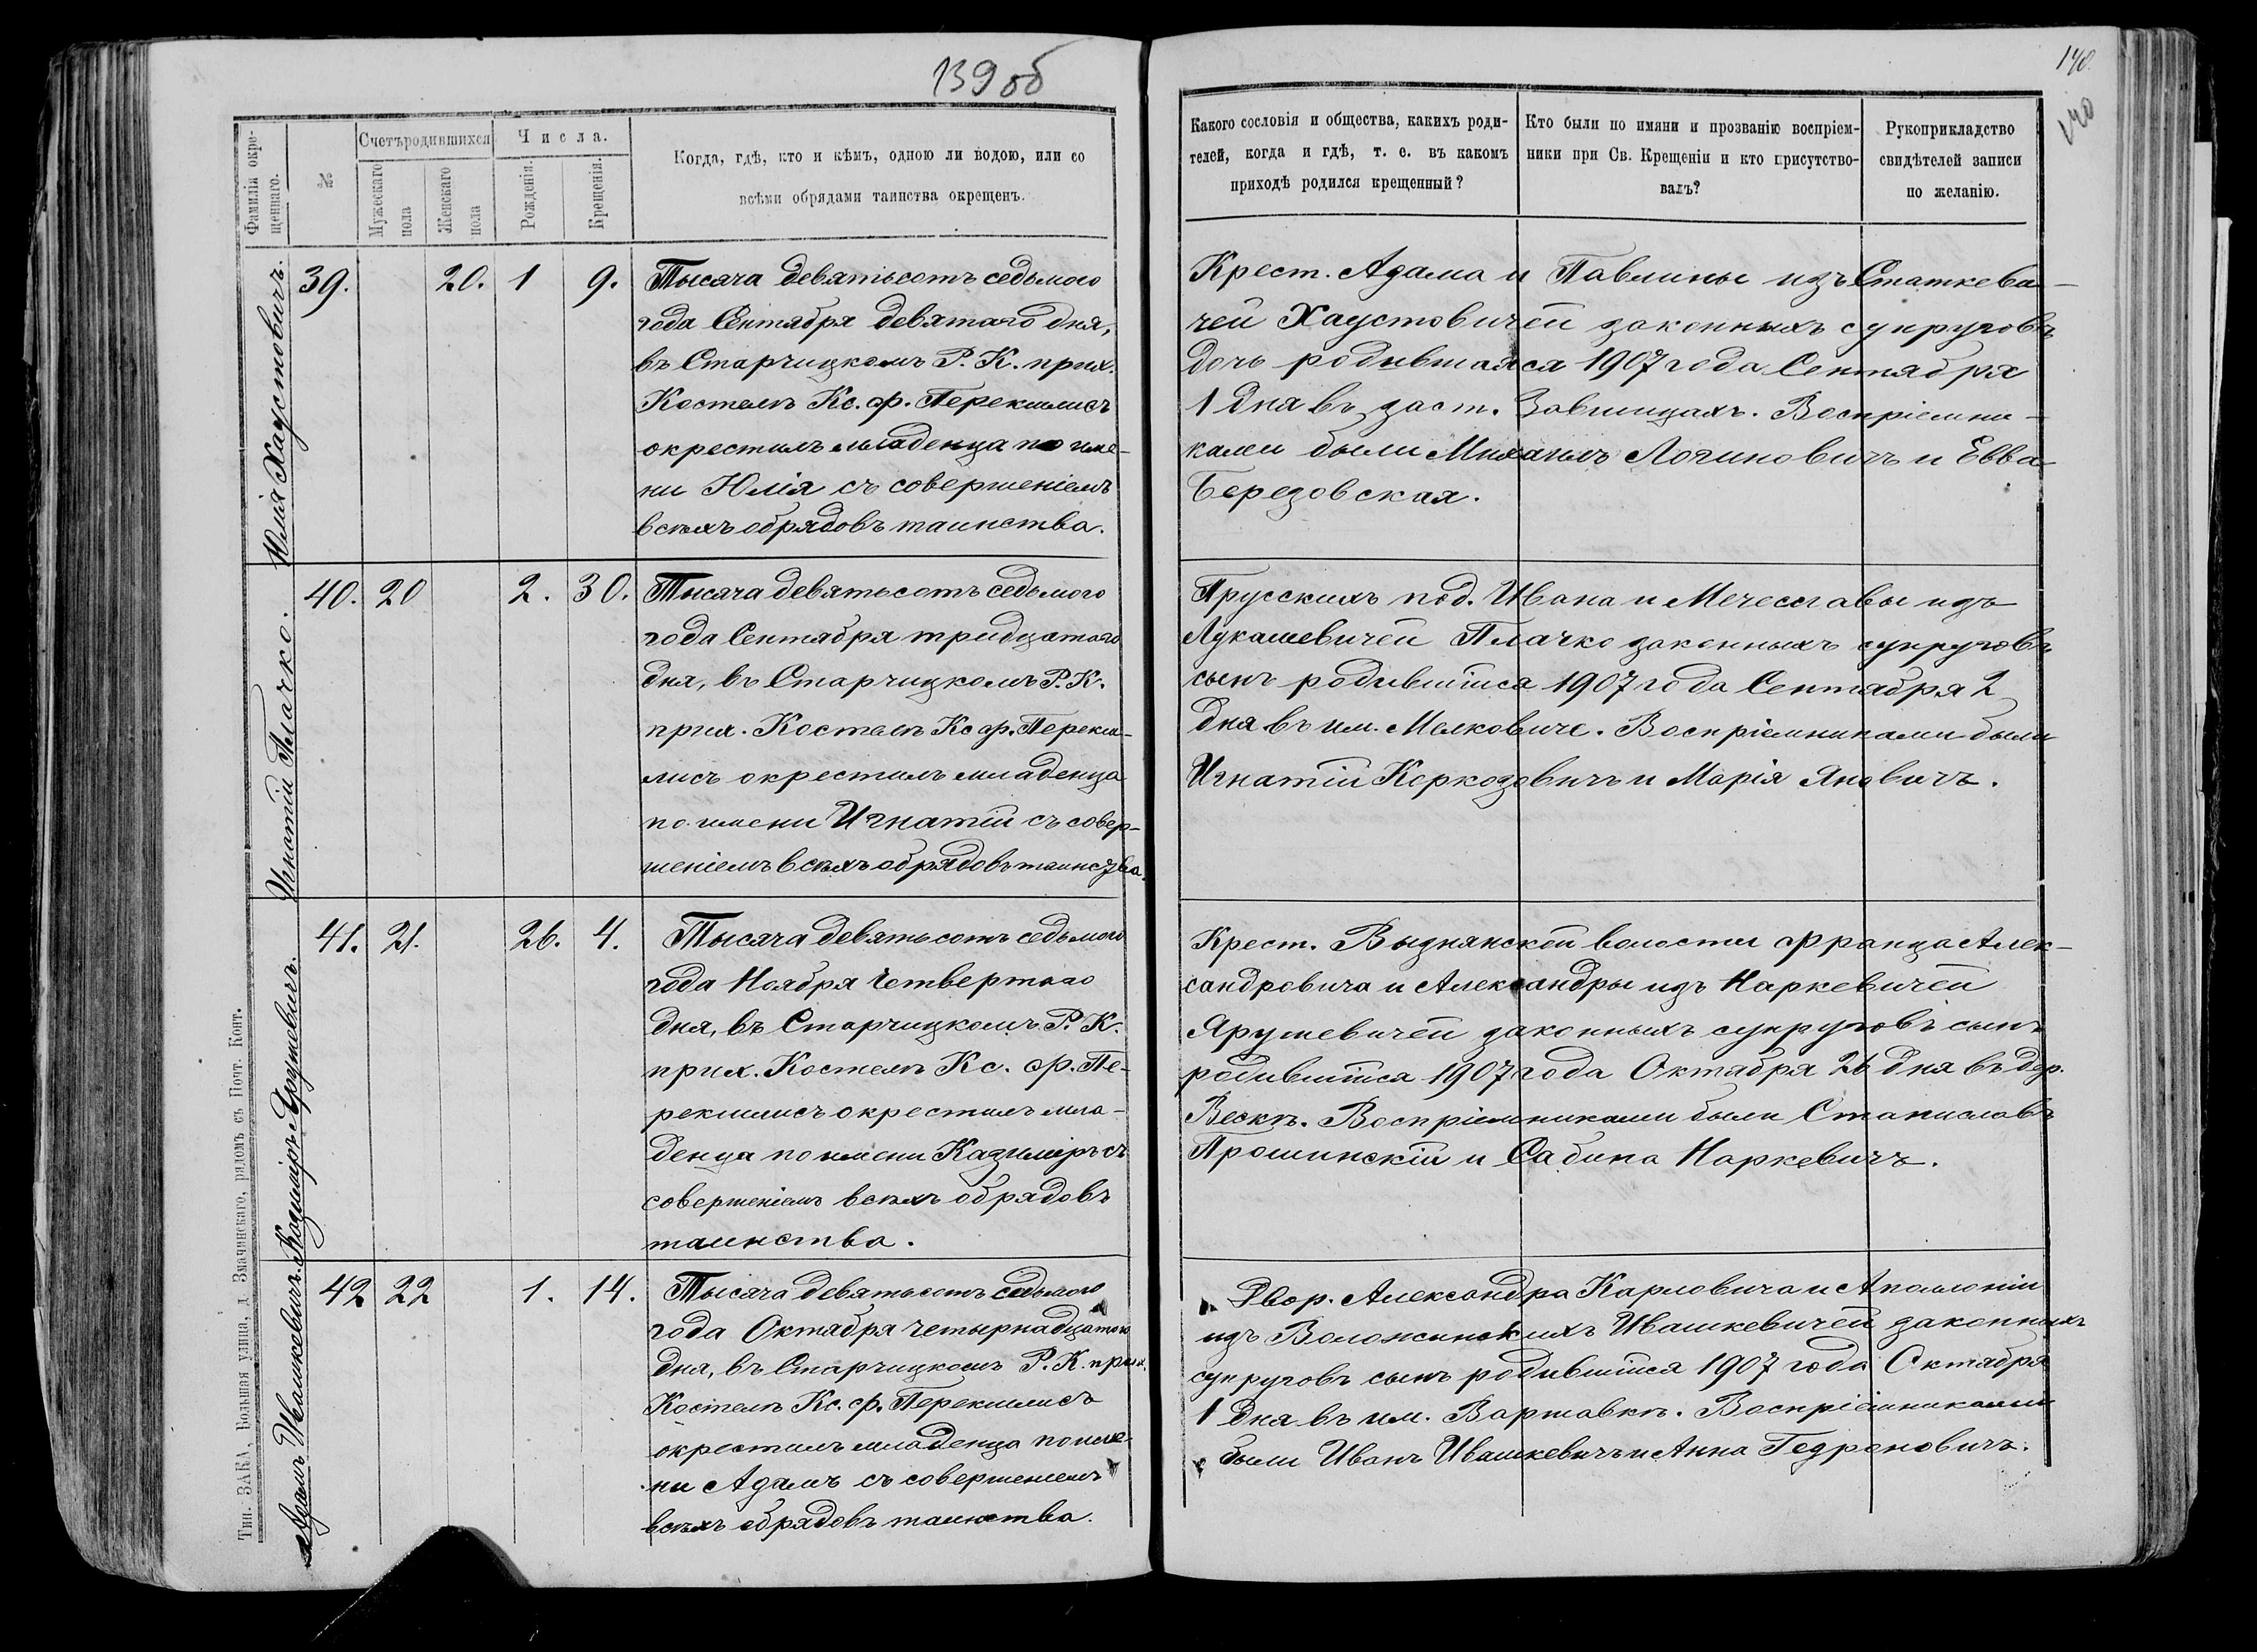 139 об
140.
140
Фамилія окрещеннаго.
№
Счетъ родившихся
Мужескаго пола
Женскаго пола
Числа.
Рожденія.
Крещенія.
Когда, гдѣ, кто и кѣмъ, одною ли водою, или со
всѣми обрядами таинства окрещенъ.
Какого сословія и общества, какихъ роди-
телей, когда и гдѣ, т. е. въ какомъ
приходѣ родился крещенный?
Кто были по имяни и прозванію воспріем-
ники при Св. Крещеніи и кто присутство-
валъ?
Рукоприкладство
свидѣтелей записи
по желанію.
Юлія Хаустовичъ.
39. 20. 1 9.
Тысяча девятьсотъ седьмого
года Сентября девятаго дня,
въ Старчицкомъ Р. К. прих.
Костелѣ Кс. Ф. Перекшлисъ
окрестилъ младенца по име-
ни Юлія съ совершеніемъ
всѣхъ обрядовъ таинства.
Крест. Адама и Павлины изъ Статкеви-
чей Хаустовичей законныхъ супруговъ
дочь родившаяся 1907 года Сентября
1 дня въ заст. Завшицахъ. Воспріемни-
ками были Михаилъ Логиновичъ и Евва
Березовская.
Игнатій Плачко.
40. 20 2. 30.
Тысяча девятьсотъ седьмого
года Сентября тридцатаго
дня, въ Старчицкомъ Р. К.
прих. Костелѣ Кс Ф. Перекш-
лисъ окрестилъ младенца
по имени Игнатій съ совер-
шеніемъ всѣхъ обрядовъ таинства.
Прусскихъ под. Ивана и Мечеславы изъ
Лукашевичей Плачко законныхъ супруговъ
сынъ родившійся 1907 года Сентября 2
дня въ им. Мелковиче. Воспріемниками были
Игнатій Коркозовичъ и Марія Яновичъ.
Казиміръ Ярушевичъ.
41. 21. 26. 4.
Тысяча девятьсотъ седьмого
года Ноября четвертаго
дня, въ Старчицкомъ Р. К.
прих. Костелѣ Кс. Ф. Пе-
рекшлисъ окрестилъ мла-
денца по имени Казиміръ съ
совершеніемъ всѣхъ обрядовъ
таинства.
Крест. Вызнянской волости Франца Алек-
сандровича и Александры изъ Наркевичей
Ярушевичей законныхъ супруговъ сынъ
родившійся 1907 года Октября 26 дня въ дер.
Вескѣ. Воспріемниками были Станиславъ
Прошинскій и Сабина Наркевичъ.
Адамъ Ивашкевичъ.
42 22 1. 14.
Тысяча девятьсотъ седьмого
года Октября четырнадцатаго
дня, въ Старчицкомъ Р. К. прих.
Костелѣ Кс. Ф. Перекшлисъ
окрестилъ младенца по име-
ни Адамъ съ совершеніемъ
всѣхъ обрядовъ таинства.
Двор. Александра Карловича и Аполлоніи
изъ Воложинскихъ Ивашкевичей законныхъ
супруговъ сынъ родившійся 1907 года Октября
1 дня въ им. Варшавкѣ. Воспріемниками
были Иванъ Ивашкевичъ и Анна Гедроновичъ.
Тип. ЗАКА, Большая улица, д. Значинскаго, рядомъ съ Почт. Конт.